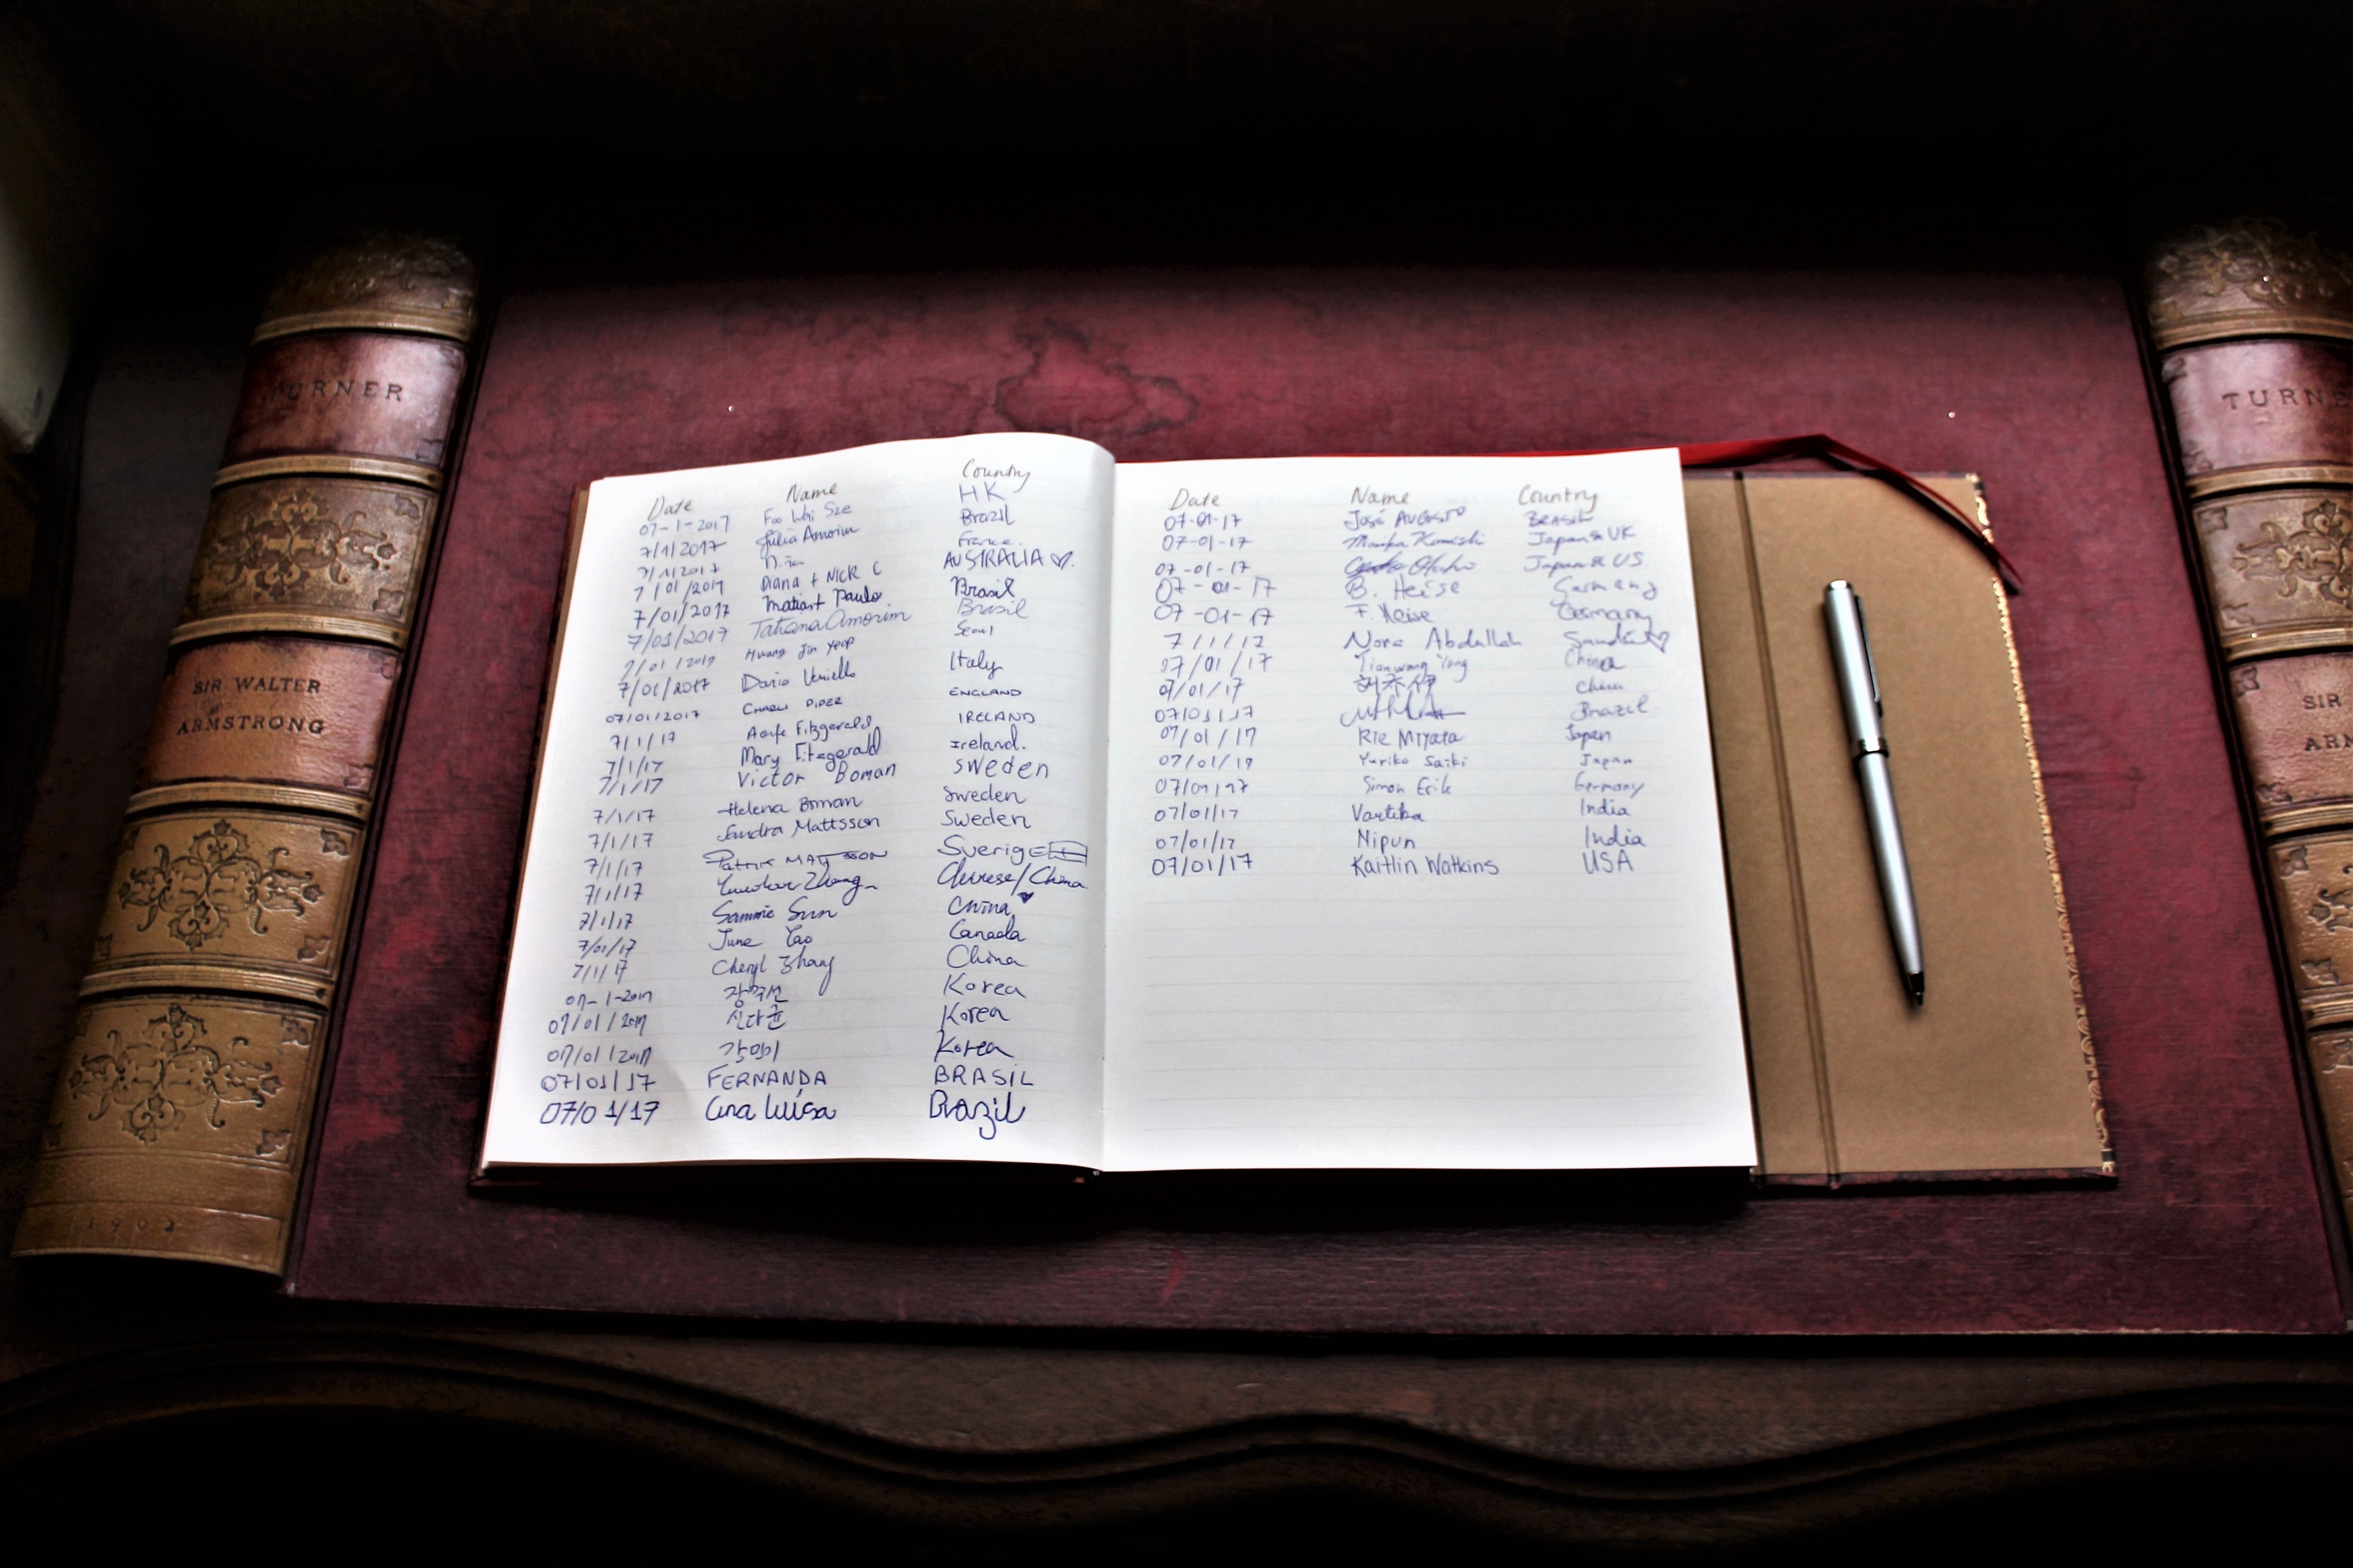 TURNER
SIR WALTER
ARMSTRONG
1902
Date Name Country
07-1-2017 Foo Whi Sze HK
7/1/2017 Júlia Amorim Brazil
7/1/2017 France.
7/01/2017 Diana + NICK C AUSTRALIA ♡.
7/01/2017 Paulo Brasil
7/01/2017 Tatiana Amorim Brasil
7/01/2017 Hwang Jin Yeop Seoul
7/01/2017 Dario Italy
07/01/2017 PIPER ENGLAND
7/1/17 Aoife Fitzgerald IRELAND
7/1/17 Mary Fitzgerald Ireland.
7/1/17 Victor Boman Sweden
7/1/17 Helena Boman Sweden
7/1/17 Sandra Mattsson Sweden
7/1/17 Patrik MATTSSON Sverige
7/1/17 Zhang Chinese/China
7/1/17 Sammie Sun China ♥
7/01/17 June Cao Canada
7/1/17 Cheryl Zhang China
07-1-2017 Korea
07/01/2017 Korea
07/01/2017 Korea
07/01/17 FERNANDA BRASIL
07/01/17 Ana Luísa Brazil
Date Name Country
07-01-17 José AUGUSTO BRASIL
07-01-17 Japan & UK
07-01-17 Japan & US
07-01-17 B. Heise Germany
07-01-17 F. Heise Germany
7/1/17 Nora Abdullah Saudi ♡
07/01/17 Tianwang Yang China
07/01/17 China
07/01/17 Brazil
07/01/17 Rie Miyata Japan
07/01/17 Yuriko Saiki Japan
07/01/17 Simon Erik Germany
07/01/17 Vartika India
07/01/17 Nipun India
07/01/17 Kaitlin Watkins USA
TURNE
SIR
ARM